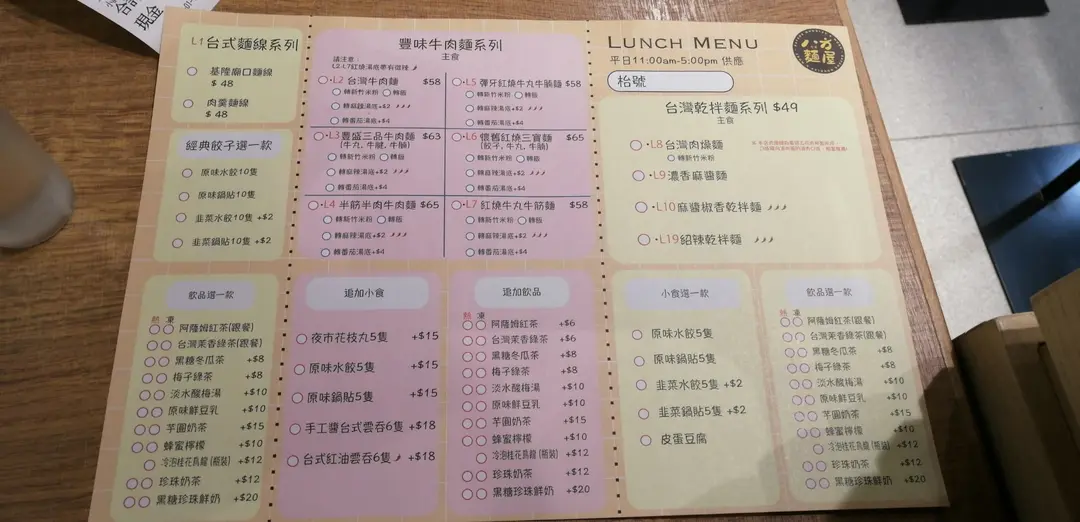 現金
L1台式麵線系列
基隆廟口麵線
$ 48
肉羹麵線
$ 48
經典餃子選一款
原味水餃10隻
原味鍋貼10隻
韭菜水餃10隻 +$2
韭菜鍋貼10隻 +$2
飲品選一款
熱 凍
阿薩姆紅茶(跟餐)
台灣茉香綠茶(跟餐)
黑糖冬瓜茶 +$8
梅子綠茶 +$8
淡水酸梅湯 +$10
原味鮮豆乳 +$10
芋圓奶茶 +$15
蜂蜜檸檬 +$10
冷泡桂花烏龍(瓶裝) +$12
珍珠奶茶 +$12
黑糖珍珠鮮奶 +$20
豐味牛肉麵系列
主食
請注意:
L2-L7紅燒湯底帶有微辣
L2 台灣牛肉麵 $58
轉新竹米粉 轉飯
轉麻辣湯底+$2
轉番茄湯底+$4
L3豐盛三品牛肉麵 $63
(牛丸, 牛腱, 牛腩)
轉新竹米粉 轉飯
轉麻辣湯底+$2
轉番茄湯底+$4
L4 半筋半肉牛肉麵 $65
轉新竹米粉 轉飯
轉麻辣湯底+$2
轉番茄湯底+$4
L5 彈牙紅燒牛丸牛腩麵 $58
轉新竹米粉 轉飯
轉麻辣湯底+$2
轉番茄湯底+$4
L6 懷舊紅燒三寶麵 $65
(餃子, 牛丸, 牛腩)
轉新竹米粉 轉飯
轉麻辣湯底+$2
轉番茄湯底+$4
L7 紅燒牛丸牛筋麵 $58
轉新竹米粉 轉飯
轉麻辣湯底+$2
轉番茄湯底+$4
追加小食
夜市花枝丸5隻 +$15
原味水餃5隻 +$15
原味鍋貼5隻 +$15
手工醬台式雲吞6隻 +$18
台式紅油雲吞6隻 +$18
追加飲品
熱 凍
阿薩姆紅茶 +$6
台灣茉香綠茶 +$6
黑糖冬瓜茶 +$8
梅子綠茶 +$8
淡水酸梅湯 +$10
原味鮮豆乳 +$10
芋圓奶茶 +$15
蜂蜜檸檬 +$10
冷泡桂花烏龍(瓶裝) +$12
珍珠奶茶 +$12
黑糖珍珠鮮奶 +$20
LUNCH MENU
平日11:00am-5:00pm 供應
枱號
八方麵屋
台灣乾拌麵系列 $49
主食
L8 台灣肉燥麵
轉新竹米粉
L9濃香麻醬麵
L10麻醬椒香乾拌麵
L19紹辣乾拌麵
小食選一款
原味水餃5隻
原味鍋貼5隻
韭菜水餃5隻 +$2
韭菜鍋貼5隻 +$2
皮蛋豆腐
飲品選一款
熱 凍
阿薩姆紅茶(跟餐)
台灣茉香綠茶(跟餐)
黑糖冬瓜茶 +$8
梅子綠茶 +$8
淡水酸梅湯 +$10
原味鮮豆乳 +$10
芋圓奶茶 +$15
蜂蜜檸檬 +$10
冷泡桂花烏龍(瓶裝) +$12
珍珠奶茶 +$12
黑糖珍珠鮮奶 +$20